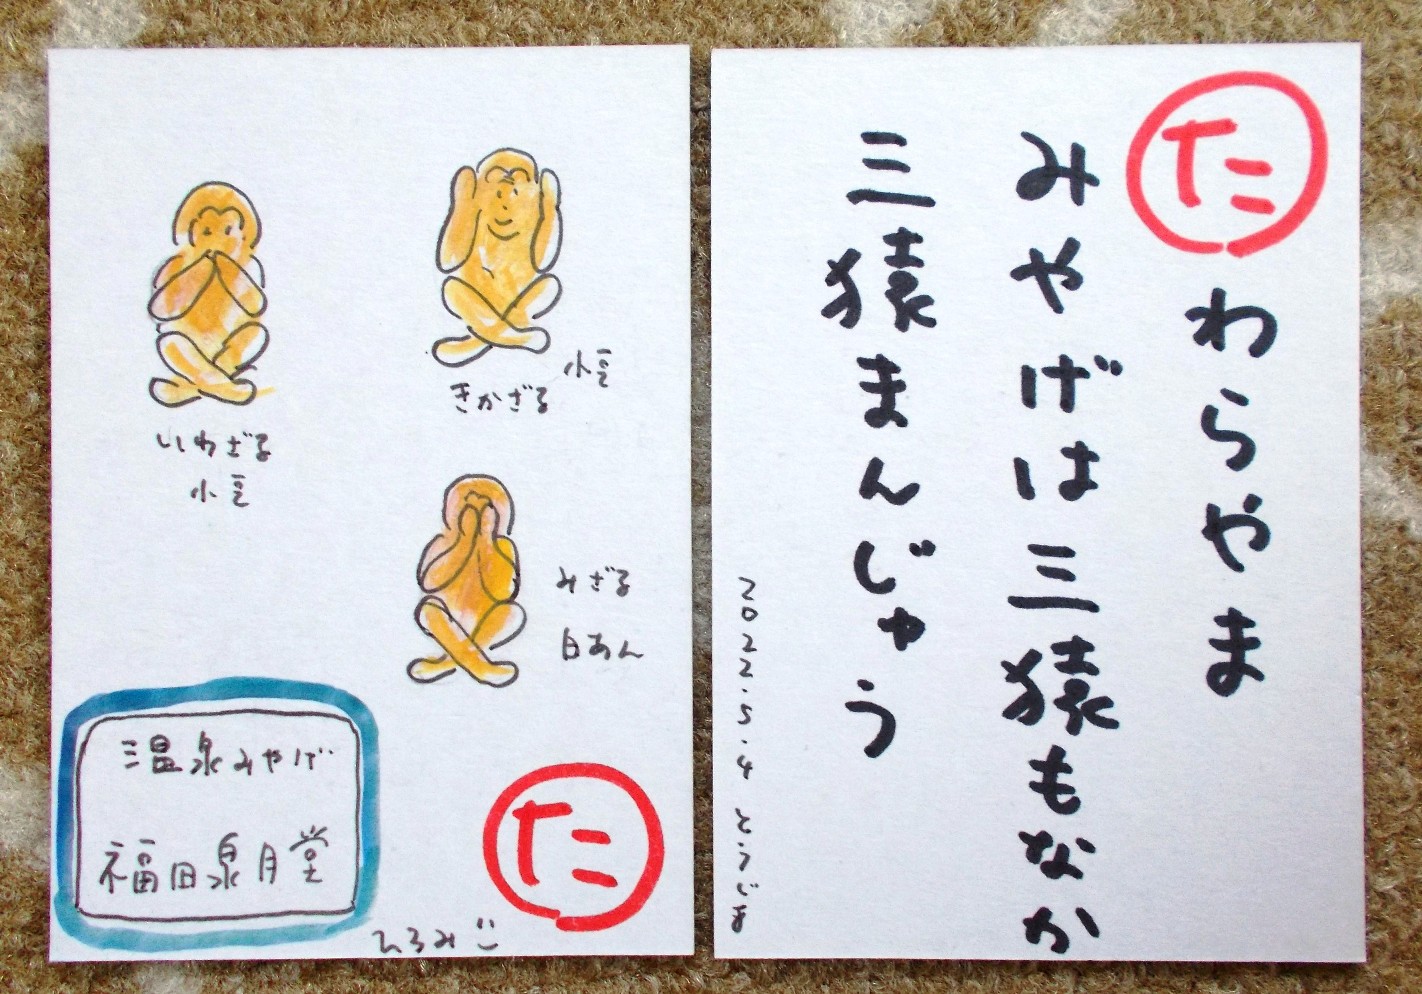 きかざる
小豆
いわざる
小豆
みざる
白あん
温泉みやげ
福田泉月堂
た
ひろみ
た
わらやま
みやげは三猿もなか
三猿まんじゅう
2022.5.4 とうじま